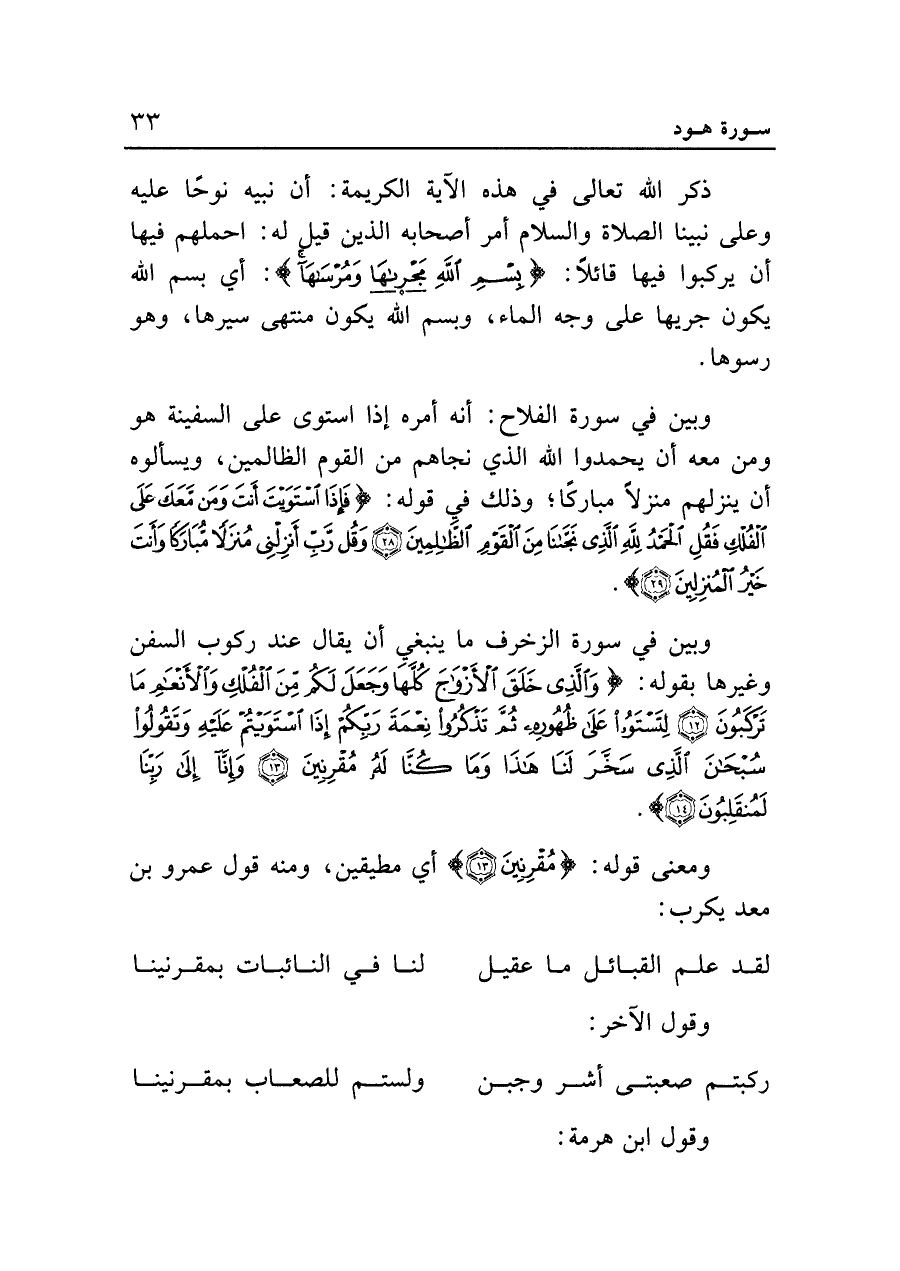 سورة هود ٣٣
ذكر الله تعالى في هذه الآية الكريمة: أن نبيه نوحًا عليه
وعلى نبينا الصلاة والسلام أمر أصحابه الذين قيل له: احملهم فيها
أن يركبوا فيها قائلاً: ﴿ بِسْمِ ٱللَّهِ مَجْرٜىٰهَا وَمُرْسَىٰهَآۚ ﴾: أي بسم الله
يكون جريها على وجه الماء، وبسم الله يكون منتهى سيرها، وهو
رسوها.
وبين في سورة الفلاح: أنه أمره إذا استوى على السفينة هو
ومن معه أن يحمدوا الله الذي نجاهم من القوم الظالمين، ويسألوه
أن ينزلهم منزلاً مباركًا؛ وذلك في قوله: ﴿ فَإِذَا ٱسْتَوَيْتَ أَنتَ وَمَن مَّعَكَ عَلَى
ٱلْفُلْكِ فَقُلِ ٱلْحَمْدُ لِلَّهِ ٱلَّذِى نَجَّىٰنَا مِنَ ٱلْقَوْمِ ٱلظَّٰلِمِينَ ﴿٢٨﴾ وَقُل رَّبِّ أَنزِلْنِى مُنزَلًا مُّبَارَكًا وَأَنتَ
خَيْرُ ٱلْمُنزِلِينَ ﴿٢٩﴾ ﴾.
وبين في سورة الزخرف ما ينبغي أن يقال عند ركوب السفن
وغيرها بقوله: ﴿ وَٱلَّذِى خَلَقَ ٱلْأَزْوَٰجَ كُلَّهَا وَجَعَلَ لَكُم مِّنَ ٱلْفُلْكِ وَٱلْأَنْعَٰمِ مَا
تَرْكَبُونَ ﴿١٢﴾ لِتَسْتَوُۥا۟ عَلَىٰ ظُهُورِهِۦ ثُمَّ تَذْكُرُوا۟ نِعْمَةَ رَبِّكُمْ إِذَا ٱسْتَوَيْتُمْ عَلَيْهِ وَتَقُولُوا۟
سُبْحَٰنَ ٱلَّذِى سَخَّرَ لَنَا هَٰذَا وَمَا كُنَّا لَهُۥ مُقْرِنِينَ ﴿١٣﴾ وَإِنَّآ إِلَىٰ رَبِّنَا
لَمُنقَلِبُونَ ﴿١٤﴾ ﴾.
ومعنى قوله: ﴿ مُقْرِنِينَ ﴿١٣﴾ ﴾ أي مطيقين، ومنه قول عمرو بن
معد يكرب:
لقد علم القبائل ما عقيل لنا في النائبات بمقرنينا
وقول الآخر:
ركبتم صعبتى أشر وجبن ولستم للصعاب بمقرنينا
وقول ابن هرمة: